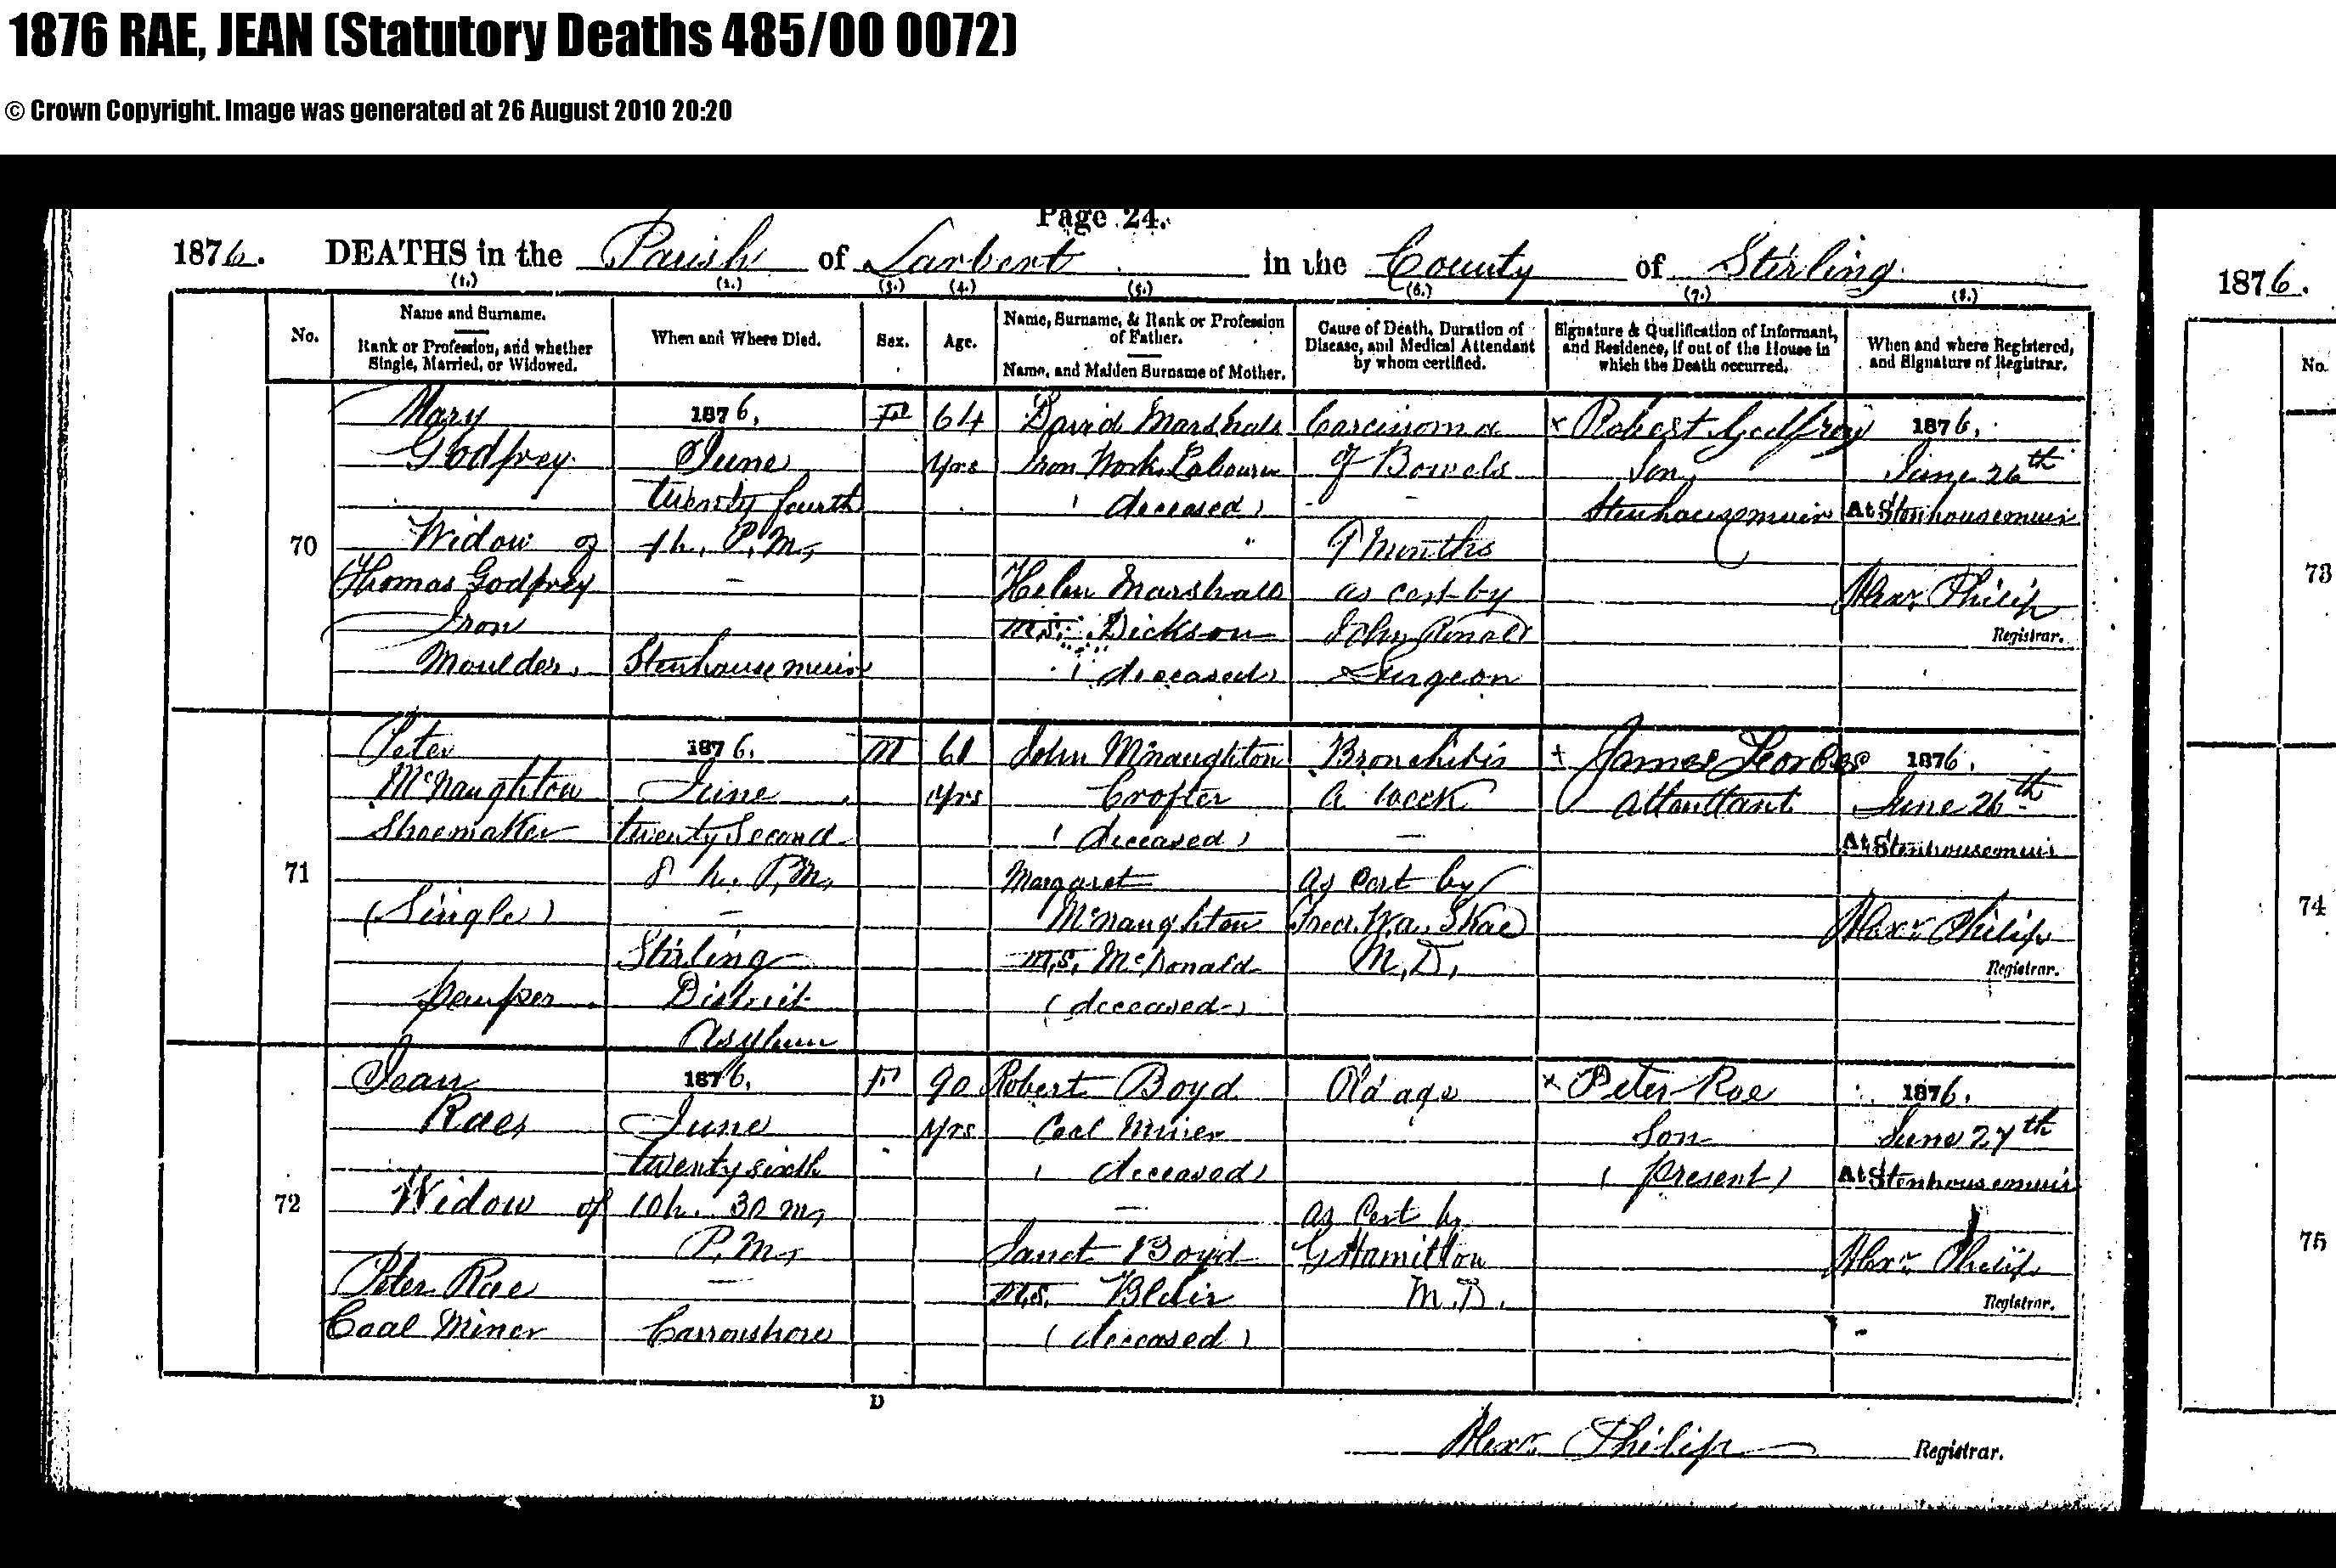 1876 RAE, JEAN (Statutory Deaths 485/00 0072)
© Crown Copyright. Image was generated at 26 August 2010 20:20
Page 24.
1876. DEATHS in the Parish of Larbert in the County of Stirling
1876.
(1.) (2.) (3.) (4.) (5.) (6.) (7.) (8.)
No.
Name and Surname.
Rank or Profession, and whether
Single, Married, or Widowed.
When and Where Died.
Sex.
Age.
Name, Surname, & Rank or Profession
of Father.
Name, and Maiden Surname of Mother.
Cause of Death, Duration of
Disease, and Medical Attendant
by whom certified.
Signature & Qualification of Informant,
and Residence, if out of the House in
which the Death occurred.
When and where Registered,
and Signature of Registrar.
No.
70
Mary
Godfrey
Widow of
Thomas Godfrey
Iron
Moulder.
1876.
June
twenty fourth
P.M.
Stenhousemuir
F
64
yrs
David Marshall
Iron Work Labourer
(deceased)
Helen Marshall
M.S. Dickson
(deceased)
Carcinoma
of Bowels
9 months
as cert by
John Ronald
Surgeon
x Robert Godfrey
Son
Stenhousemuir
1876.
June 26th
At Stenhousemuir
Alexr Philip
Registrar.
73
71
Peter
McNaughton
Shoemaker
(Single)
pauper
1876.
June
twenty second
8 h. P.M.
Stirling
District
Asylum
M
61
yrs
John McNaughton
Crofter
(deceased)
Margaret
McNaughton
M.S. McDonald
(deceased)
Bronchitis
a week
as cert by
Fred. W.A. Skae
M.D.
+ James Forbes
attendant
1876.
June 26th
At Stenhousemuir
Alexr Philip
Registrar.
74
72
Jean
Rae
Widow of
Peter Rae
Coal Miner
1876.
June
twenty sixth
10 h. 30 m.
P.M.
Carronshore
F
90
yrs
Robert Boyd
Coal Miner
(deceased)
Janet Boyd
M.S. Blair
(deceased)
Old age
as cert by
G Hamilton
M.D.
x Peter Rae
Son
(present)
1876.
June 27th
At Stenhousemuir
Alexr Philip
Registrar.
75
D
Alexr Philip Registrar.